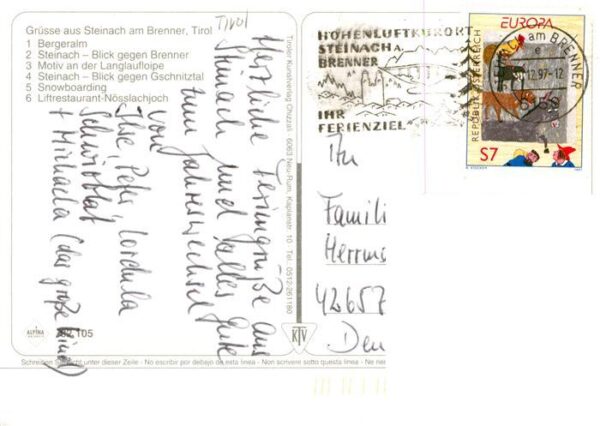 Grüsse aus Steinach am Brenner, Tirol
1 Bergeralm
2 Steinach – Blick gegen Brenner
3 Motiv an der Langlaufloipe
4 Steinach – Blick gegen Gschnitztal
5 Snowboarding
6 Liftrestaurant-Nösslachjoch
Tirol
Herzliche Feriengrüße aus
Steinach und alles Gute
zum Jahreswechsel
von
Ilse, Peter, Cordula
+ Michaela (das große Kind)
ALPINA
105
Tiroler Kunstverlag Chizzali · 6063 Neu-Rum, Kaplanstr. 10 · Tel. 0512-261180
KTV
HÖHENLUFTKURORT
STEINACH A.
BRENNER
IHR
FERIENZIEL
ACH am BRENNER
12.97-12
6150
EUROPA
REPUBLIK ÖSTERREICH
S7
1997
Famili
Herrn
42657
Schreiben Sie nicht unter dieser Zeile - No escribir por debajo de esta linea - Non scrivere sotto questa linea - Ne